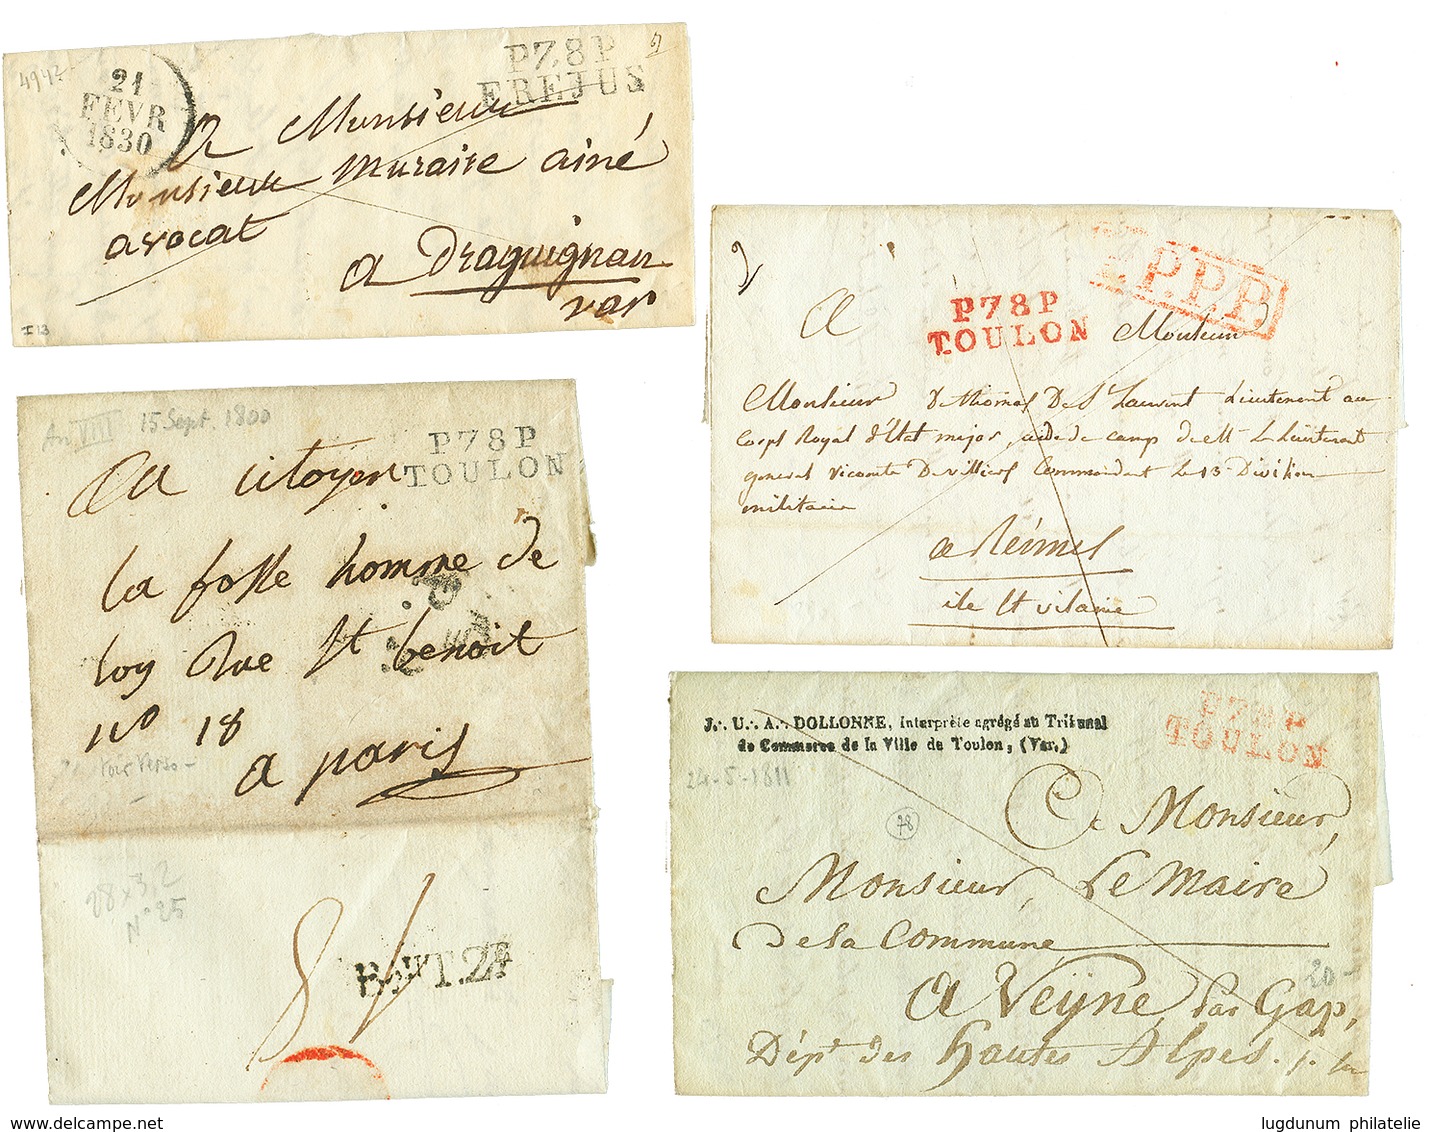 4942
21
FEVR
1830
P.78.P
FREJUS
A Monsieur
Monsieur muraire ainé
avocat
a Draguignan
var
I 13
P78P
TOULON
P.P.P.P.
A
Monsieur
Monsieur De Thomas De St Laurent Lieutenant au
Corps Royal d'Etat major, aide de camp de Mr Le Lieutenant
general Vicomte De villiers Commandant Le 13e Division
militaire
a Reimes
ile et vilaine
An VIII 15 Sept. 1800
P78P
TOULON
Au citoyen
la fosse homme de
loy Rue St benoit
no 18
a paris
Voir Verso
28 x 3,2
N° 25
8
B.  T.24
J∴ U∴ A∴ DOLLONNE, Interprète agrégé au Tribunal
de Commerce de la Ville de Toulon, (Var.)
P78P
TOULON
24-5-1811
78
A Monsieur,
Monsieur, Le Maire
De la Commune
A Veÿne, par Gap,
Dépt des hautes Alpes.
20-
delcampe.net
lugdunum philatelie